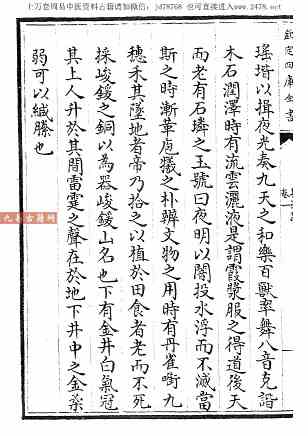 上万套周易中医资料古籍请加微信:jd78768 也可直接进入www.2478.net
欽定四庫全書
瑶堦以揖夜光奏九天之和樂百獸率舞八音克諧
木石潤澤時有流雲灑液是謂霞漿服之得道後天
而老有石璘之玉號曰夜明以闇投水浮而不滅當
斯之時漸革庖犧之朴辨文物之用時有丹雀嘀九
穗禾其墜地者帝乃拾之以植於田食者老而不死
採峻鍰之銅以為器峻鍰山名也下有金井白氣冠
其上人升於其間雷霆之聲在於地下井中之金柔
弱可以緘縢也
九易古籍网